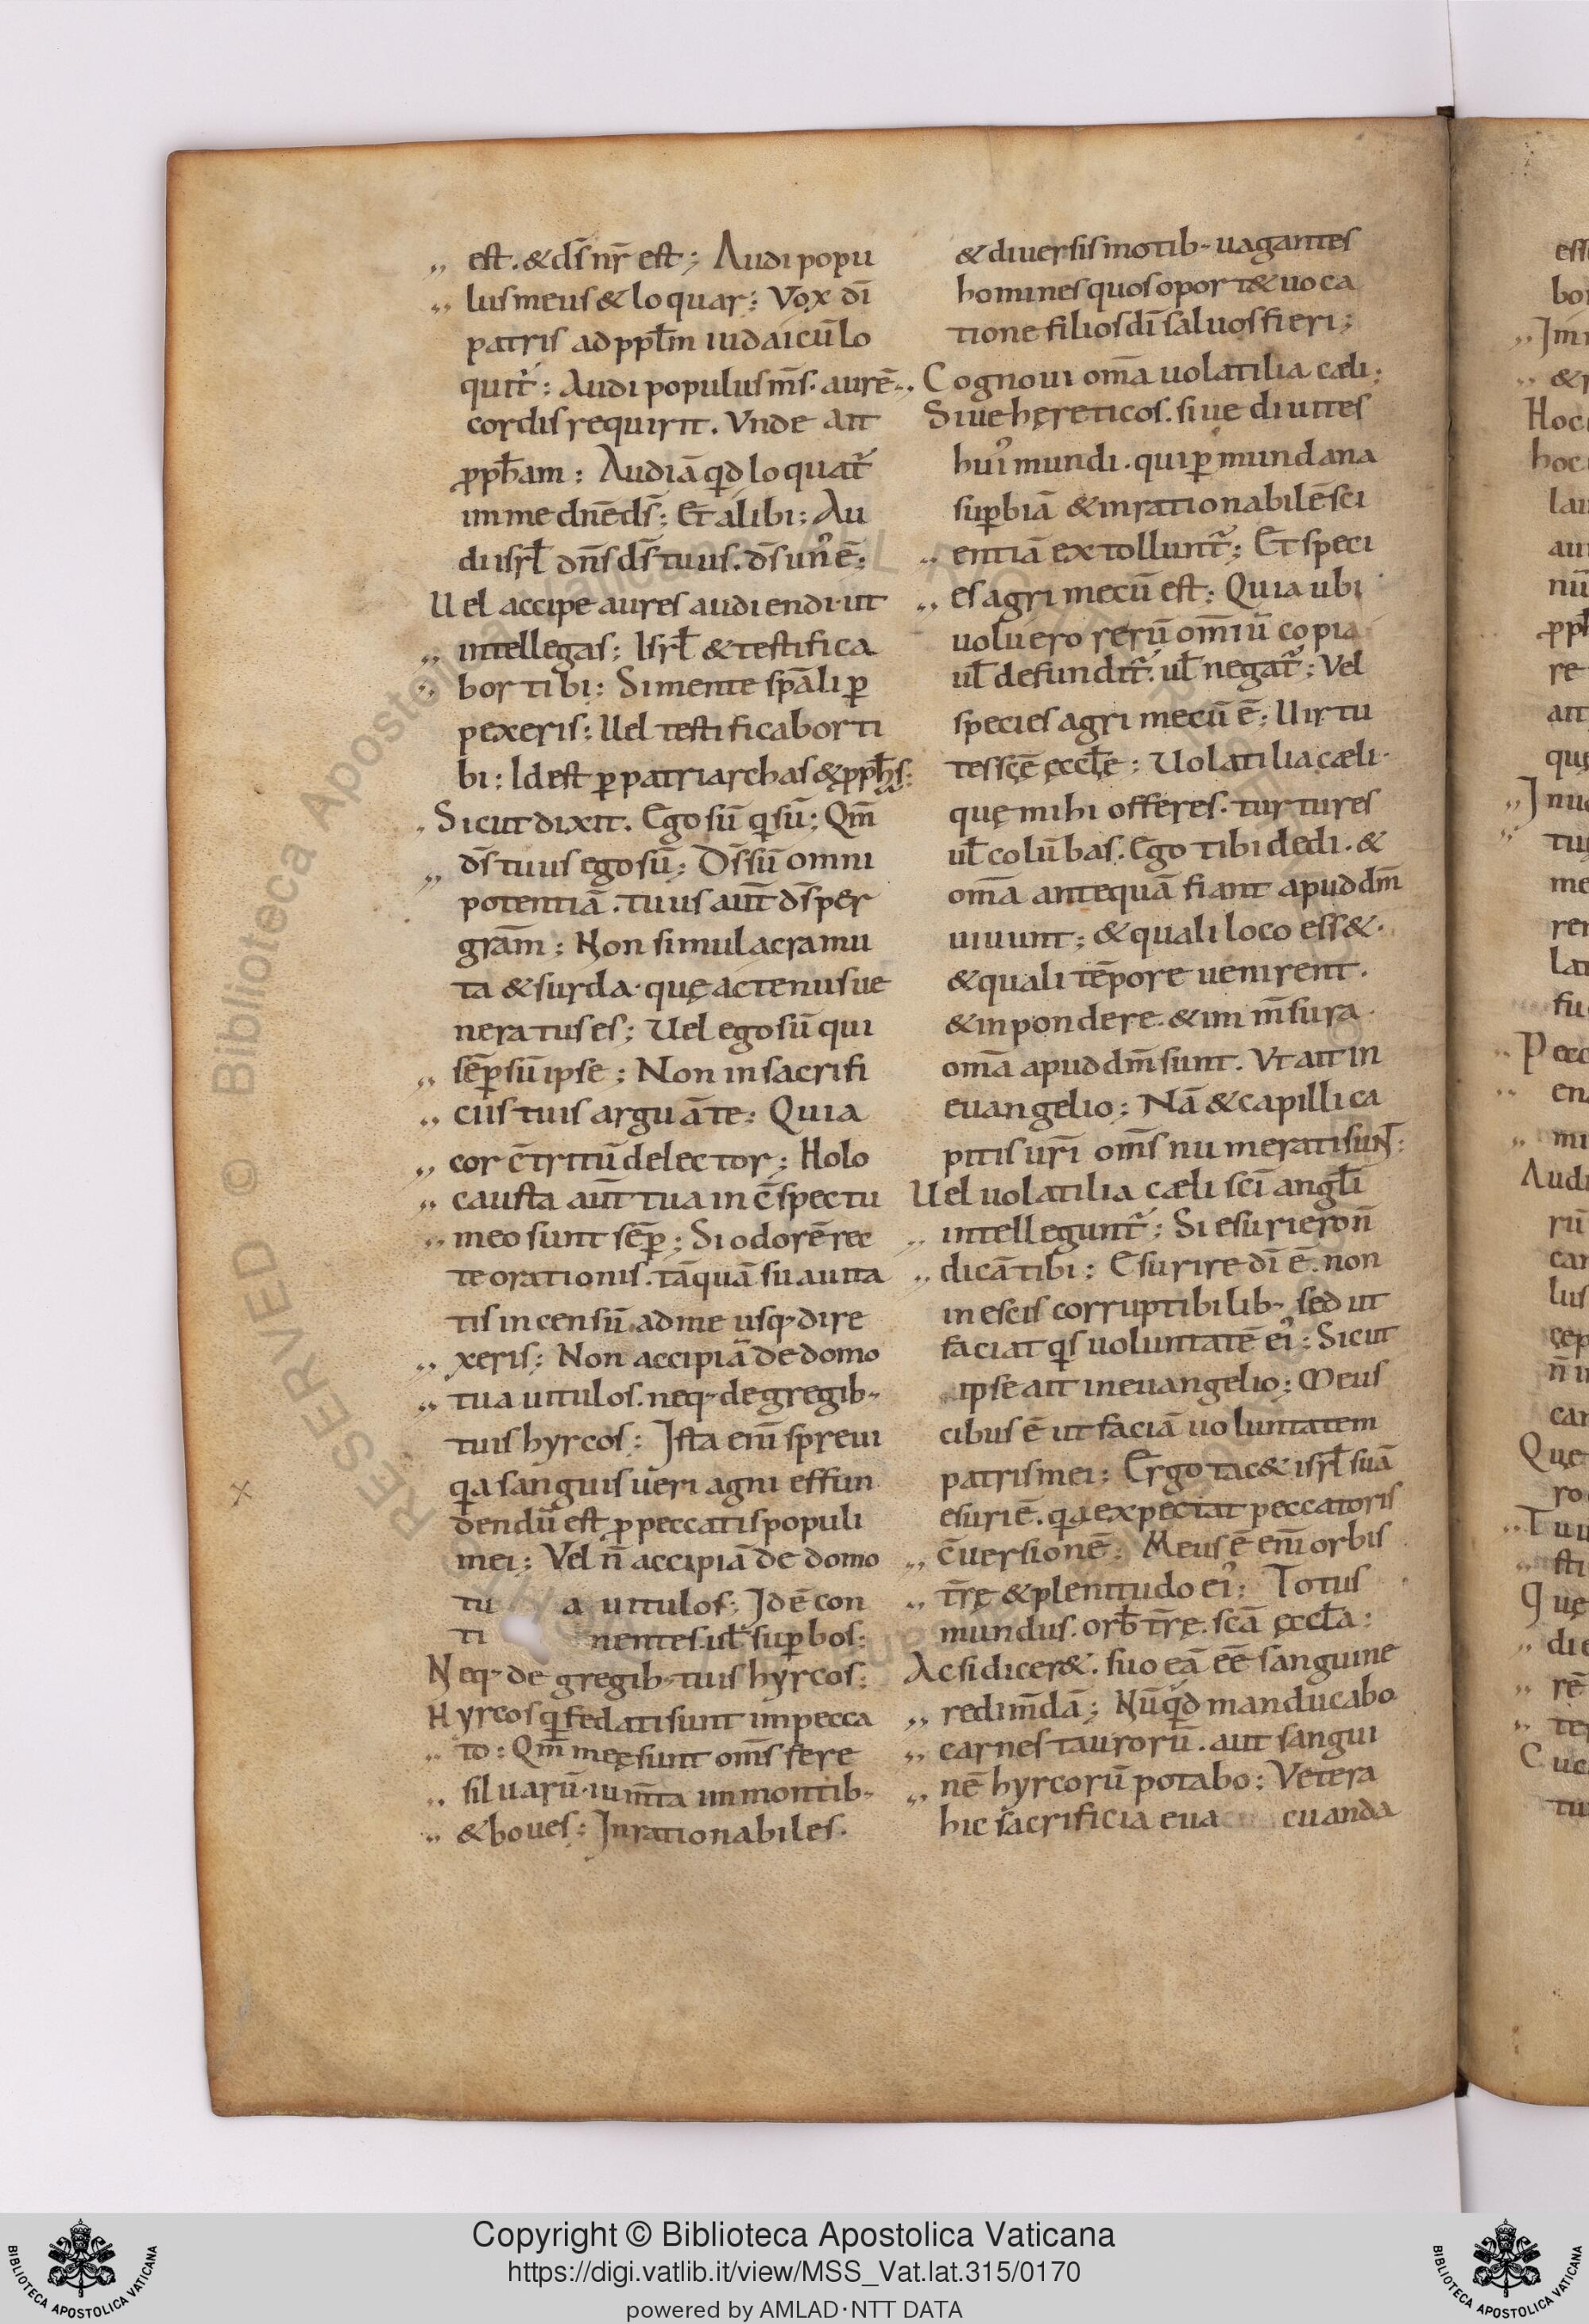 est. & dš nr̄ est; Audi popu
lus meus & loquar: Vox dī
patris ad ppl̄m iudaicū lo
quit̄: Audi populus m̄s. aurē
cordis requirit. Vnde ait
ꝓph̄am: Audiā qd loquat̄
in me dn̄e ds̄; Et alibi: Au
di isrl̄ dn̄s ds̄ tuus. ds̄ un᾽ ē:
Uel accipe aures audiendi. ut
intellegas; Isrl̄ & testifica
bor tibi: Si mente spāli ꝑ
pexeris: Uel testificabor ti
bi: Id est ꝑ patriarchas & ꝓph̄s:
Sicut dixit. Ego sū q sū; Qm̄
ds̄ tuus ego sū; Ds̄ sū omni
potentiā. tuus aūt ds̄ per
grām; Non simulacra mu
ta & surda. quę actenus ue
neratus es; Uel ego sū qui
sēꝑ sū ipse; Non in sacrifi
ciis tuis arguā te: Quia
cor c̄tritū delector; Holo
causta aūt tua in c̄spectu
meo sunt sēꝑ; Si odorē rec
te orationis. tāquā suauita
tis incensū. ad me usq· dire
xeris: Non accipiā de domo
tua uitulos. neq· de gregib·
tuis hyrcos: Ista enī spreui
qa sanguis ueri agni effun
dendū est ꝓ peccatis populi
mei: Vel n̄ accipiā de domo
tu a uitulos; Id ē con
ti nentes. ul̄ suꝑbos:
Neq· de gregib· tuis hyrcos:
Hyrcos q fedati sunt in pecca
to: Qm̄ meę sunt om̄s fere
siluarū. ium̄ta in montib·
& boues: Inrationabiles.
& diuersis motib· uagantes
homines quos oport& uoca
tione filios dī saluos fieri;
Cognoui om̄a uolatilia cæli;
Siue hęreticos. siue diuites
hui᾽ mundi. qui ꝑ mundana
suꝑbiā & inrationabilē sci
entiā extollunt̄; Et speci
es agri mecū est: Quia ubi
uoluero rerū om̄iū copia
ul̄ defundit̄. ul̄ negat̄; Vel
species agri mecū ē; Uirtu
tes sc̄ę ęccl̄ę; Uolatilia cæli.
quę mihi offeres. turtures
ul̄ colūbas. Ego tibi dedi. &
om̄a antequā fiant apud dm̄
uiuunt; & quali loco ess&.
& quali tēpore uenirent.
& in pondere. & im m̄sura.
om̄a apud dm̄ sunt. Vt ait in
euangelio; Nā & capilli ca
pitis ur̄i om̄s numerati sunt:
Uel uolatilia cæli sc̄i angl̄i
intellegunt̄; Si esuriero n̄
dicā tibi: Esurire dī ē. non
in escis corruptibilib· sed ut
faciat qs uoluntatē ei᾽: Sicut
ipse ait in euangelio; Meus
cibus ē ut faciā uoluntatem
patris mei: Ergo tac& isrl̄ suā
esuriē. qa expectat peccatoris
c̄uersionē: Meus ē enī orbis
tr̄ę & plenitudo ei᾽: Totus
mundus. orb̄ tr̄ę. scā ęccl̄a:
Ac si dicer&. suo eā ēē sanguine
redim̄dā; Nūqd manducabo
carnes taurorū. aut sangui
nē hyrcorū potabo: Vetera
hic sacrificia eua cuanda
Copyright © Biblioteca Apostolica Vaticana
https://digi.vatlib.it/view/MSS_Vat.lat.315/0170
powered by AMLAD·NTT DATA
BIBLIOTECA APOSTOLICA VATICANA
BIBLIOTECA APOSTOLICA VATICANA